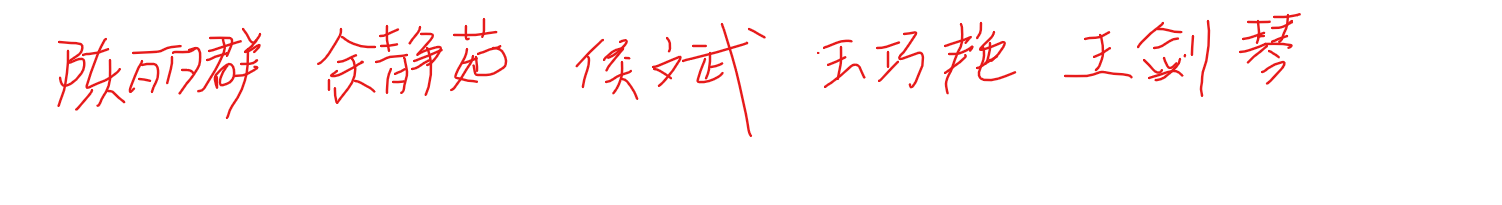 陈丽群 余静茹 侯斌 王巧艳 王剑琴